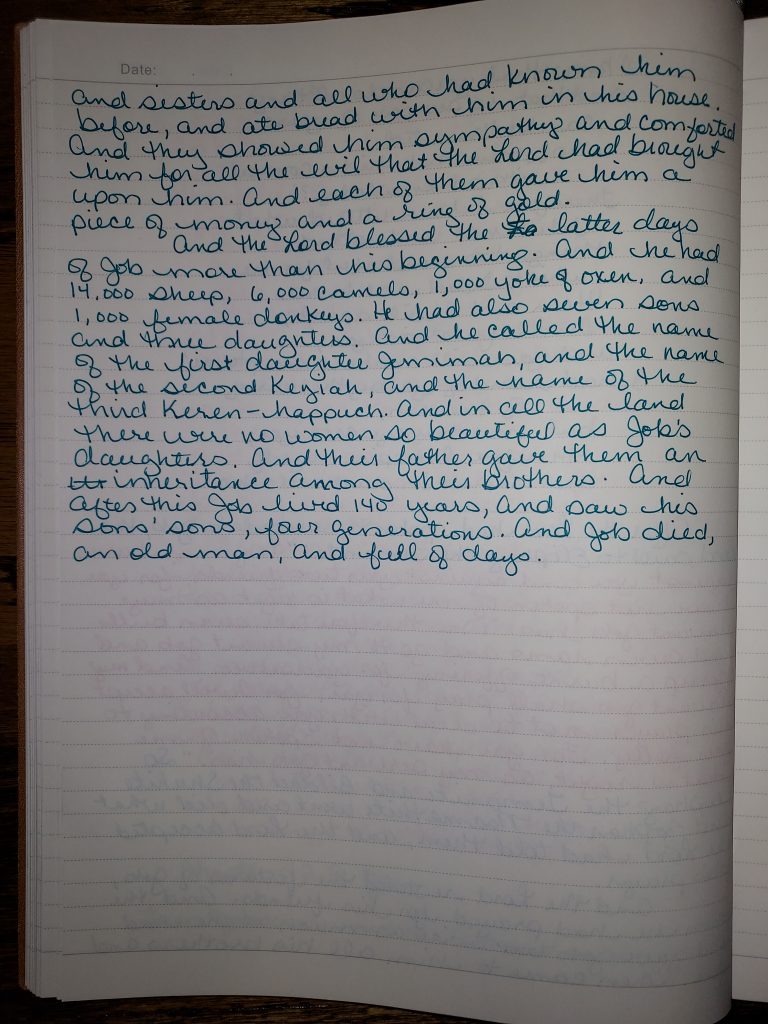 Date: . .
and sisters and all who had known him
before, and ate bread with him in his house.
And they showed him sympathy and comforted
him for all the evil that the Lord had brought
upon him. And each of them gave him a
piece of money and a ring of gold.
And the Lord blessed the latter days
of Job more than his beginning. And he had
14,000 sheep, 6,000 camels, 1,000 yoke of oxen, and
1,000 female donkeys. He had also seven sons
and three daughters. And he called the name
of the first daughter Jemimah, and the name
of the second Keziah, and the name of the
third Keren-happuch. And in all the land
there were no women so beautiful as Job's
daughters. And their father gave them an
inheritance among their brothers. And
after this Job lived 140 years, and saw his
sons' sons, four generations. And Job died,
an old man, and full of days.